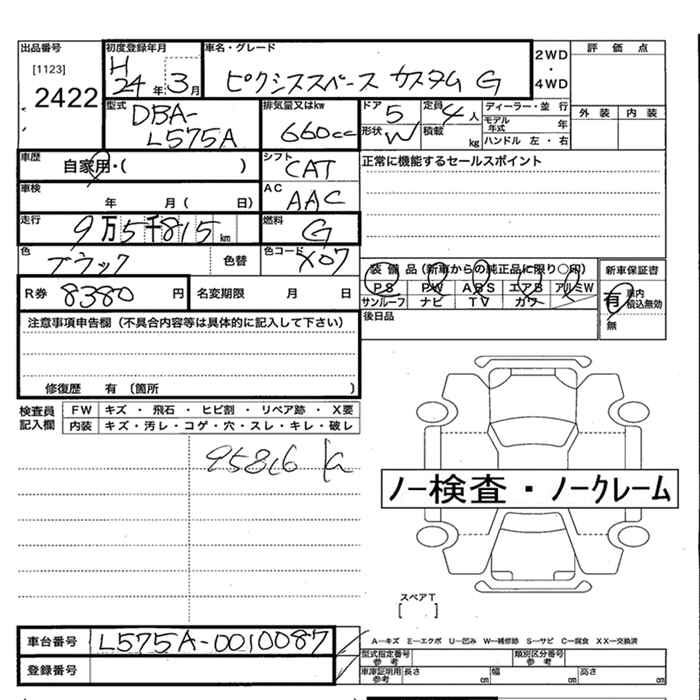 出品番号
[1123]
2422
初度登録年月
H
24 年 3 月
車名・グレード
ピクシススペース カスタム G
2WD
・
4WD
評 価 点
外 装 内 装
型式
DBA-
L575A
排気量又はkw
660cc
ドア 5
定員 4 人
形状 W
積載 kg
ディーラー・並 行
モデル年式 年
ハンドル 左 ・ 右
車歴
自家用・( )
シフト
CAT
正常に機能するセールスポイント
車検
年 月 ( 日)
AC
AAC
走行
9万5千815 km
燃料
G
色
ブラック
色替
色コード
X07
装 備 品 (新車からの純正品に限り○印)
PS PW ABS エアB アルミW
サンルーフ ナビ TV カワ
新車保証書
有
車内積込無効
無
R券 8380 円
名変期限 月 日
後日品
注意事項申告欄(不具合内容等は具体的に記入して下さい)
修復歴 有 〔箇所 〕
検査員
記入欄
FW キズ ・ 飛石 ・ ヒビ割 ・ リペア跡 ・ X要
内装 キズ・汚レ・コゲ・穴・スレ・キレ・破レ
95816 K
ノー検査・ノークレーム
スペアT
[ ]
車台番号 L575A-0010087
登録番号
A―キズ E―エクボ U―凹み W―補修跡 S―サビ C―腐食 XX―交換済
型式指定番号
参 考
類別区分番号
参 考
車庫証明用
参考
長さ cm 幅 cm 高さ cm